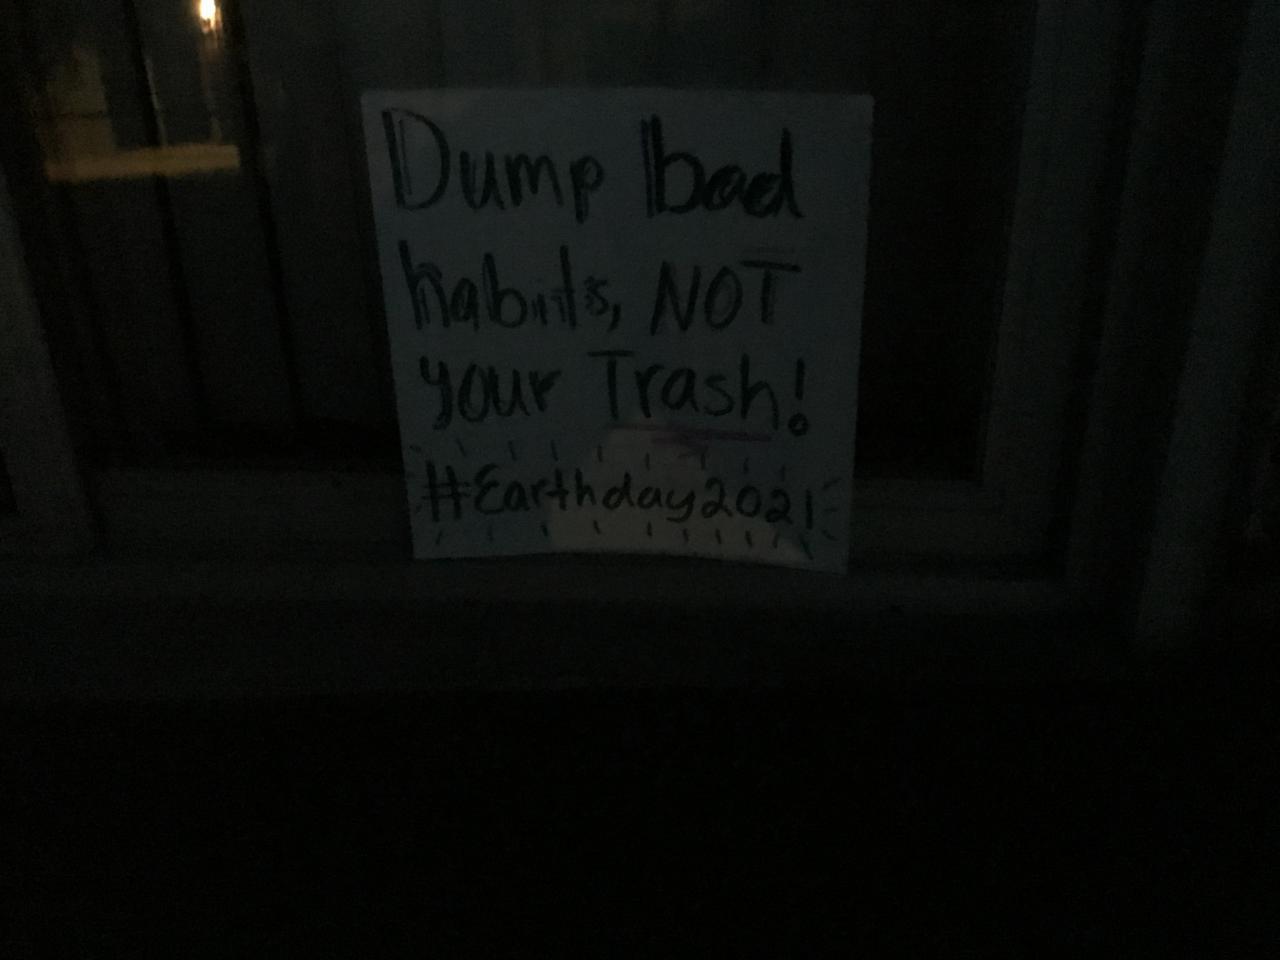 Dump bad
habits, NOT
your Trash!
#Earthday2021